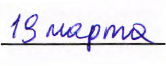 19 марта